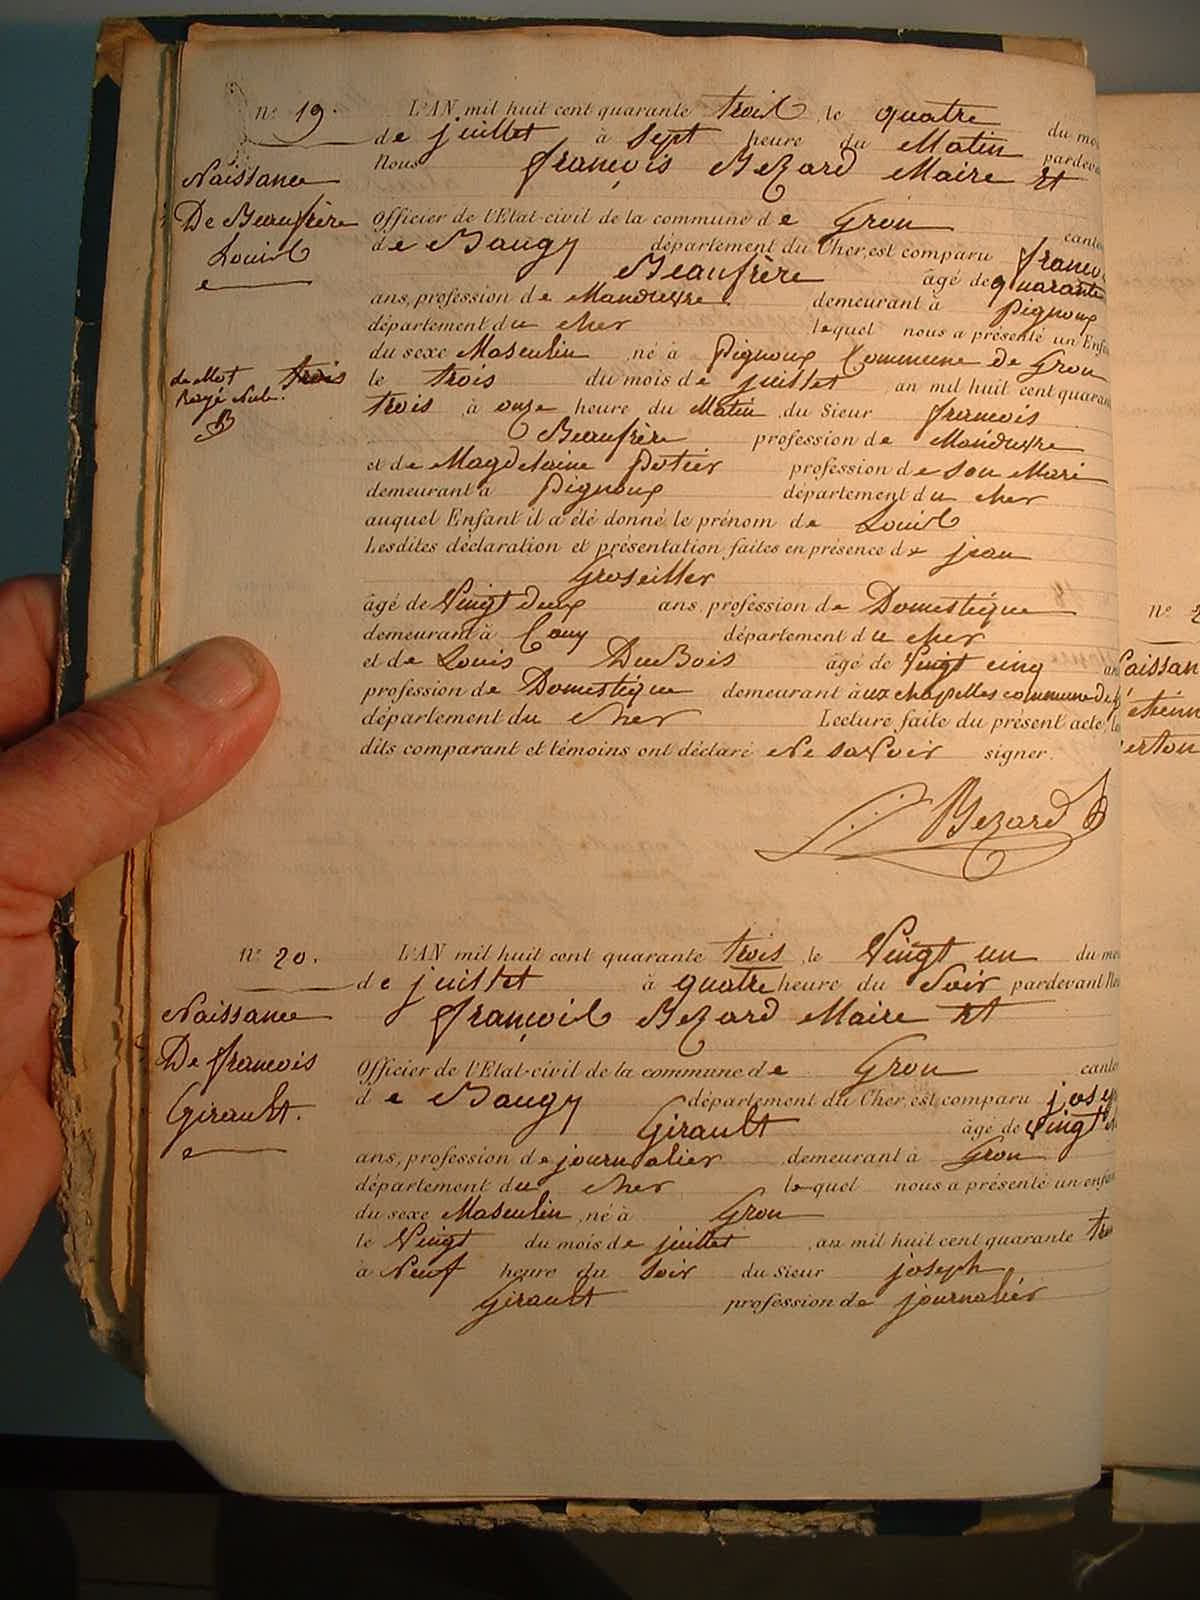 n° 19.
L'AN mil huit cent quarante trois, le quatre du mo
de juillet à sept heure du Matin pardeva
Nous françois Bezard Maire Et
Naissance
De Beaufrère
Louis
Officier de l'Etat-civil de la commune de Gron canto
de Baugy département du Cher, est comparu franco
Beaufrère âgé de quarante
ans, profession de Manœuvre demeurant à Pignoux
département du cher lequel nous a présenté un Enfa
du sexe Masculin né à Pignoux Commune de Gron
le Mot trois
Rayé Nul.
B
le trois du mois de juillet an mil huit cent quaran
trois, à onze heure du Matin, du Sieur francois
Beaufrère profession de Manœuvre
et de Magdelaine Petier profession de son Mari
demeurant à Pignoux département du cher
auquel Enfant il a été donné le prénom de Louis
Lesdites déclaration et présentation faites en présence de jean
Groseiller
âgé de Vingt deux ans, profession de Domestique
demeurant à Couy département du cher
et de Louis DuBois âgé de Vingt cinq an
profession de Domestique demeurant à ux chapelles commune de
département du cher Lecture faite du présent acte, les
dits comparant et témoins ont déclaré Ne savoir signer.
Bezard
n° 20.
L'AN mil huit cent quarante trois, le Vingt un du mo
de juillet à quatre heure du Soir pardevant No
Naissance
De francois
Girault.
françois Bezard Maire Et
Officier de l'Etat-civil de la commune de Gron canto
de Baugy département du Cher, est comparu josep
Girault âgé de vingt
ans, profession de journalier demeurant à Gron
département du cher lequel nous a présenté un enfa
du sexe Masculin, né à Gron
le Vingt du mois de juillet, an mil huit cent quarante tro
à Neuf heure du Soir du Sieur joseph
Girault profession de journalier
n° 2
aissan
étienn
erton